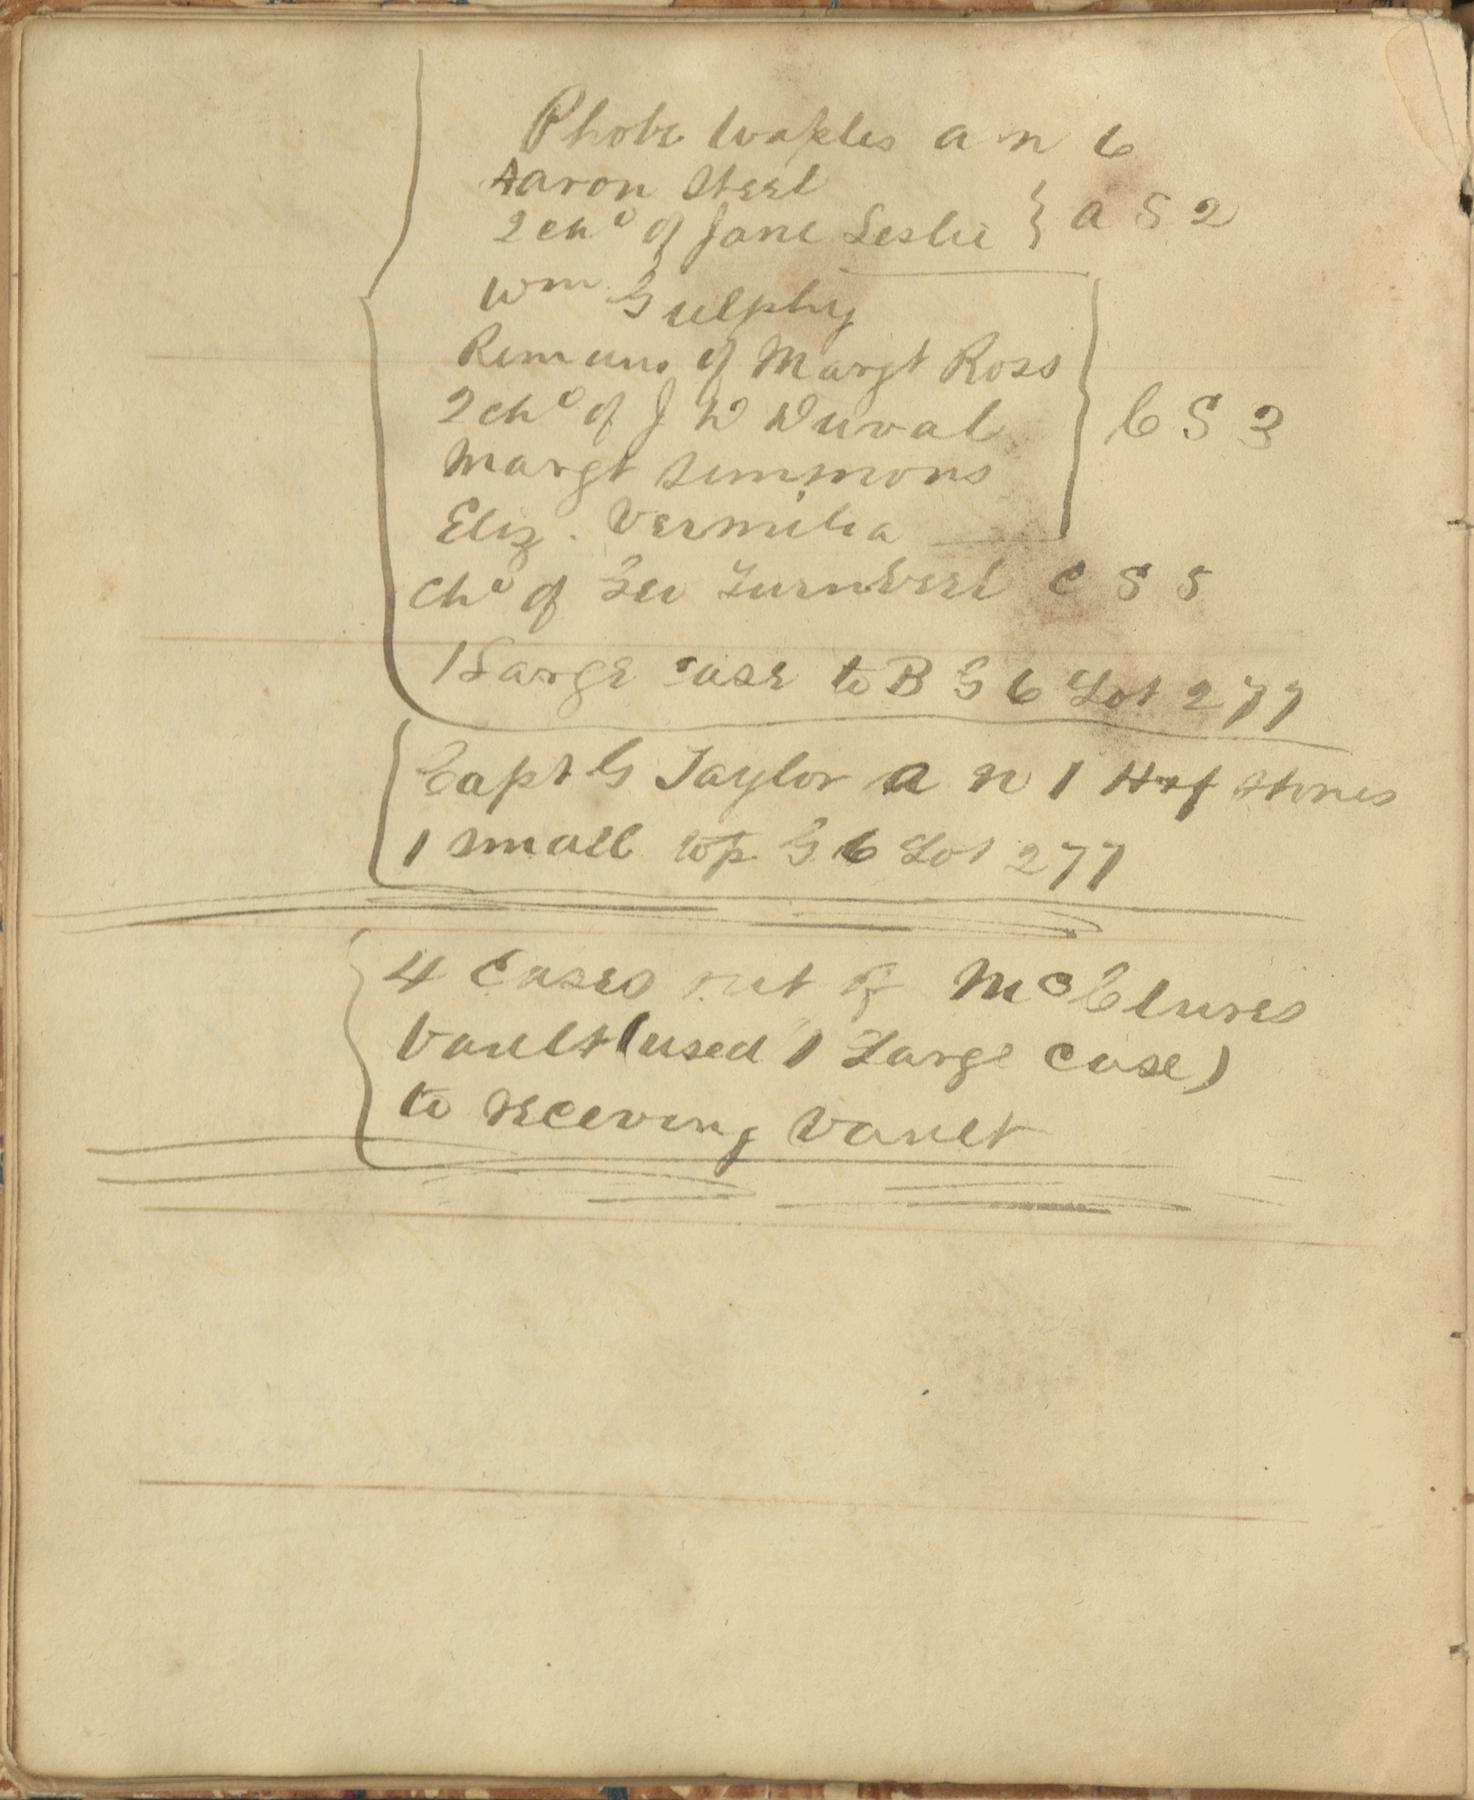 Phobe Waples a n 6
Aaron Steel
2 chd of Jane Leslie } a S 2
Wm Gulphy
Remains of Margt Ross
2 chd of J W Duval } C S 3
Margt Simmons
Eliz. Vermilia
Chd of Geo Turnbull C S 5
1 Large case to B G 6 Lot 277
Capt G Taylor a n 1 H & f stones
1 small top G 6 Lot 277
4 Cases out of McClures
Vault (used 1 Large Case)
to receving Vault